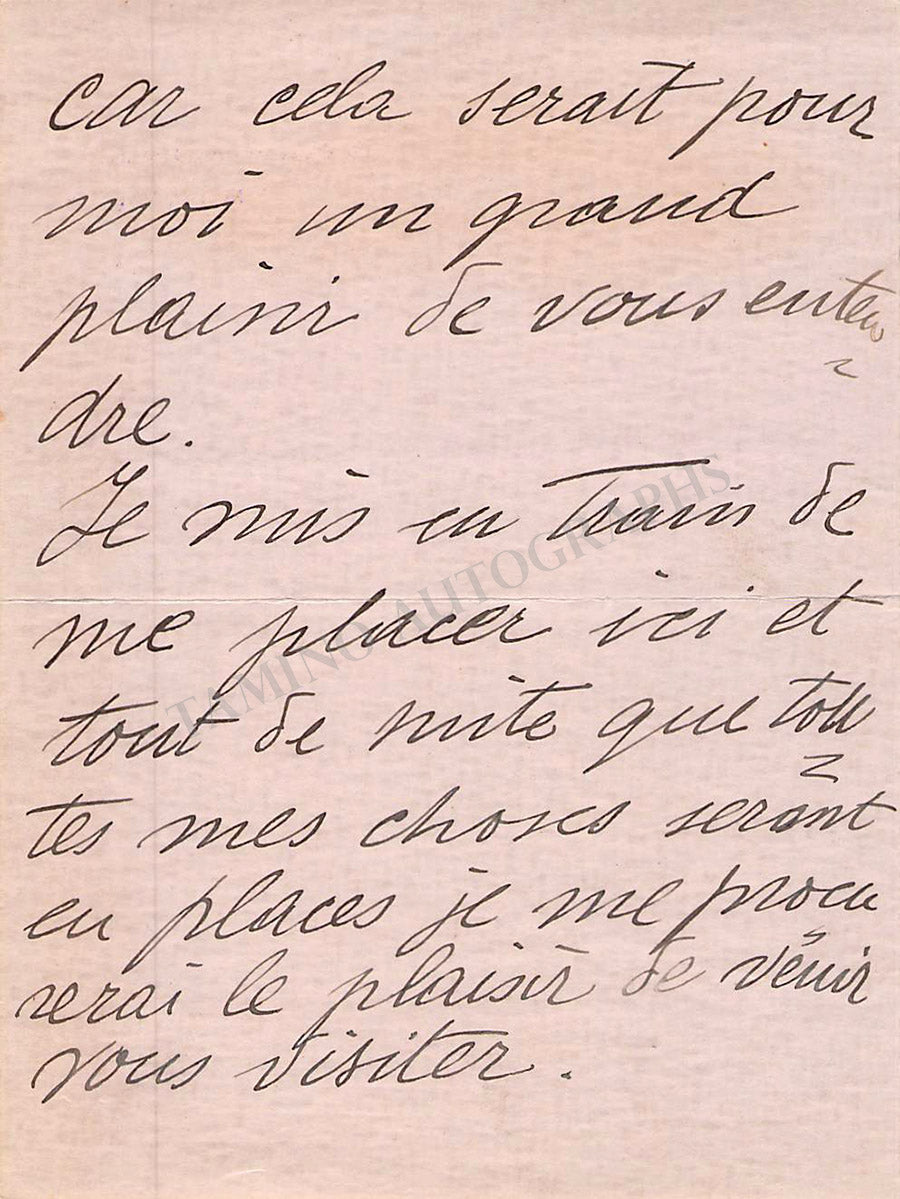 car cela serait pour
moi un grand
plaisir de vous enten
dre.
Je suis en train de
me placer ici et
tout de suite que tou
tes mes choses seront
en places je me procu
rerai le plaisir de venir
vous visiter.
TAMINO AUTOGRAPHS